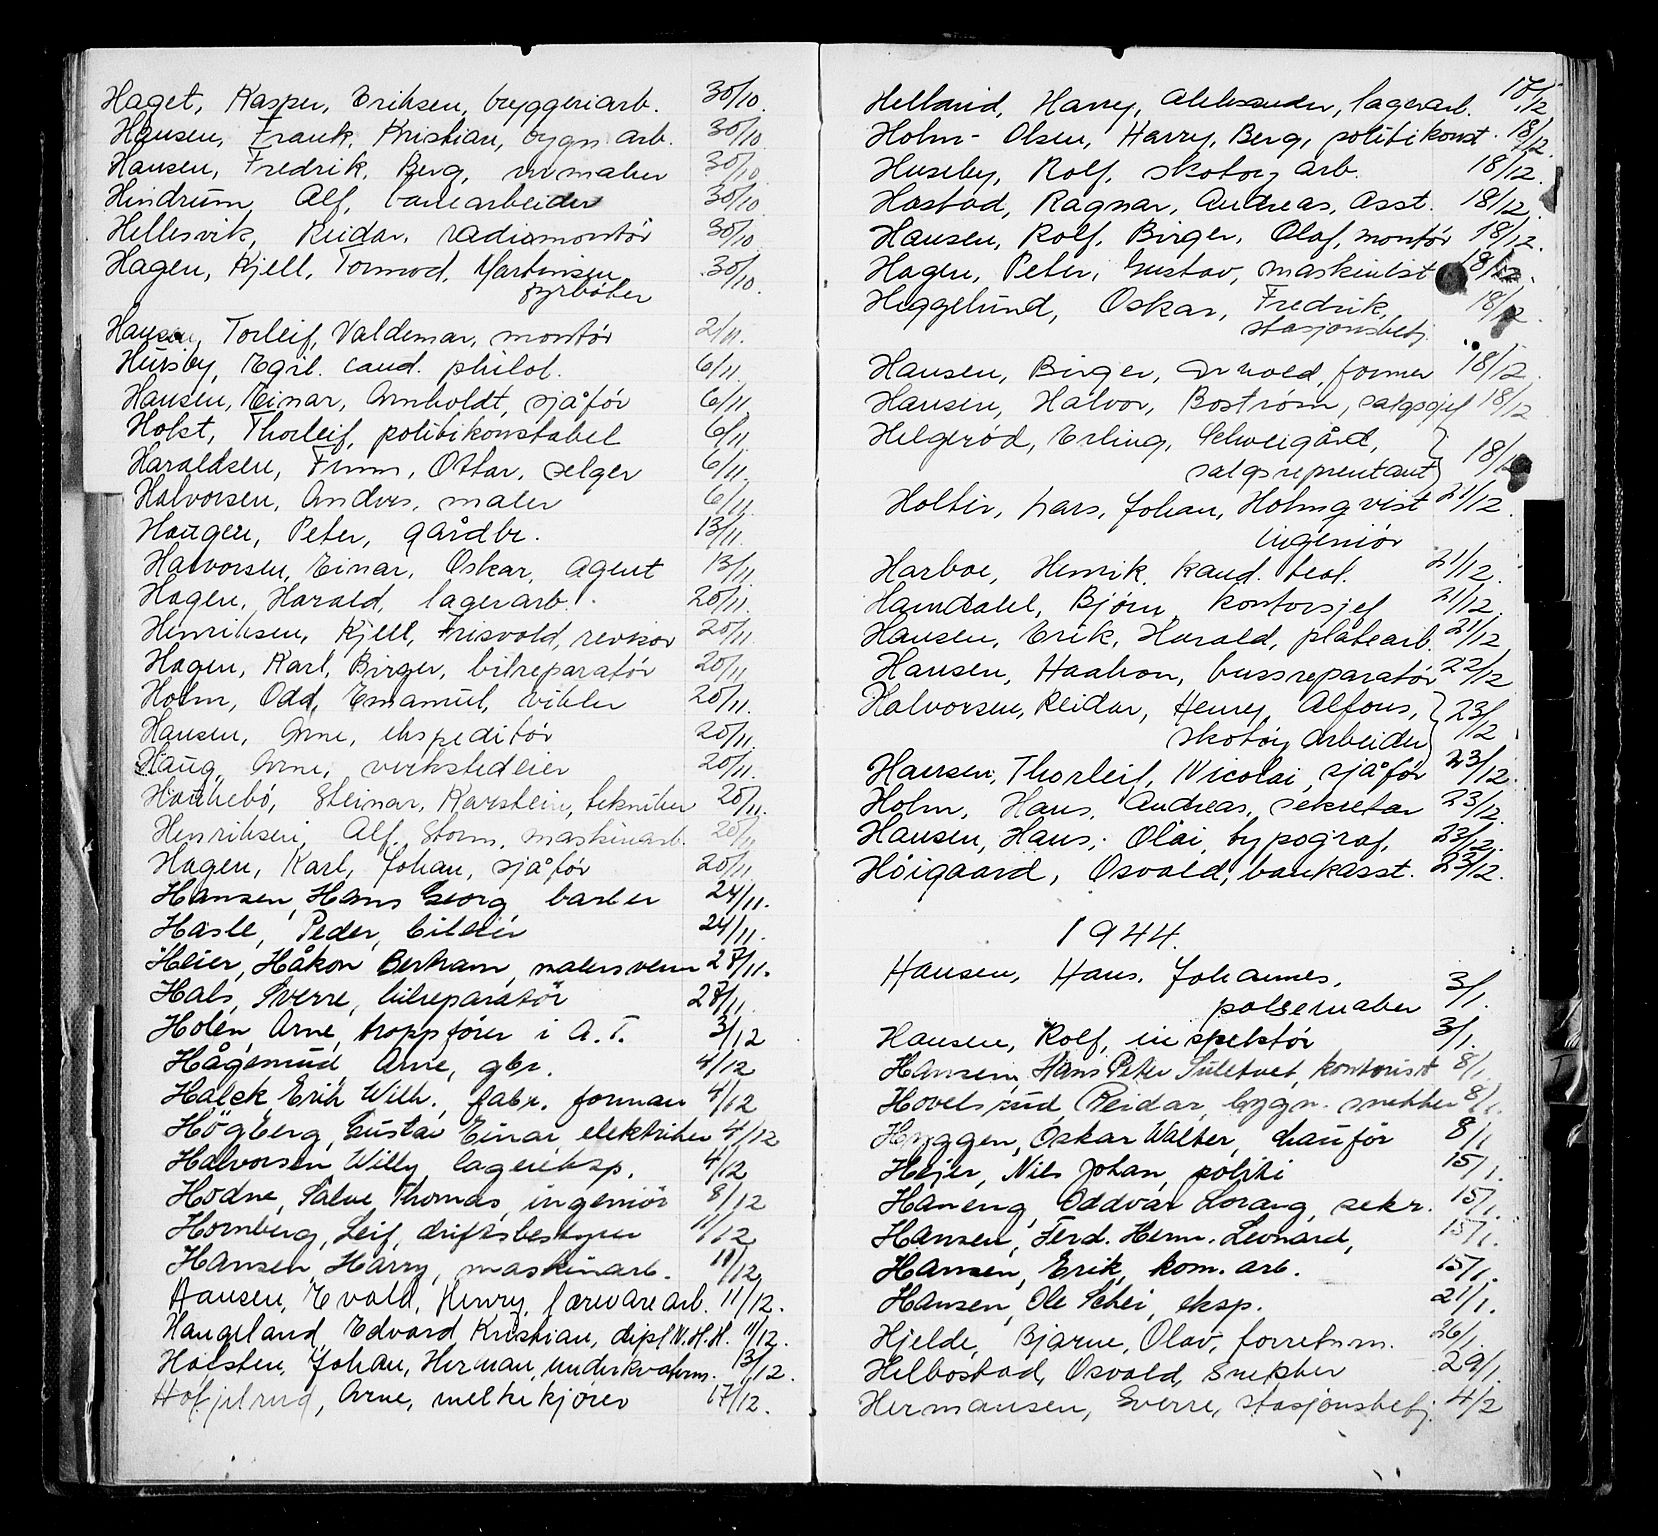 Haget, Kasper, Eriksen, bryggeriarb. 30/10.
Hansen, Frank, Kristian, bygn arb. 30/10.
Hansen, Fredrik, Berg, maler 30/10.
Hindrum, Alf, banearbeider 30/10.
Hellesvik, Reidar, radiomontör 30/10.
Hagen, Kjell, Tormod, Martinsen, 30/10.
fyrböter
Hansen, Torleif, Valdemar, montör 2/11.
Husby, Egil. cand. philol. 6/11.
Hansen, Einar, Arnholdt, sjåför 6/11.
Holst, Thorleif, politikonstabel 6/11.
Haraldsen, Finn, Ottar, selger 6/11.
Halvorsen, Anders, maler 6/11.
Haugen, Peter, gårdbr. 13/11.
Halvorsen, Einar, Oskar, agent 13/11.
Hagen, Harald, lagerarb. 20/11.
Henriksen, Kjell, Frisvold, revisor 20/11.
Hagen, Karl, Birger, bilreparatör 20/11
Holm, Odd, Emanuel, vikler 20/11.
Hansen, Arne, ekspeditör 20/11.
Haug, Arne, verkstedeier 20/11.
Hannebö, Steinar, Karstein, tekniker 20/11.
Henriksen, Alf, Storm, maskinarb. 20/11
Hagen, Karl, Johan, sjåför 20/11.
Hansen, Hans Georg, barber 24/11.
Hasle, Peder, bileier 24/11.
Heier, Håkon Bertram, malersvenn 27/11.
Hals, Sverre, bilreparatör 28/11.
Holen, Arne, troppförer i A.T. 3/12
Hågensrud, Arne, gbr. 4/12
Halck Erik Wilh., fabr. forman 4/12
Högberg, Gustav Einar, elektriker 4/12
Halvorsen Willy, lagereksp. 4/12
Hodne, Salve Thomas, ingeniör 8/12
Hornberg, Leif, driftsbestyrer 11/12
Hansen, Harry, maskinarb. 11/12
Hansen, Evald, Henry, lærvarearb. 11/12.
Haugeland, Edvard Kristian, dipl N.H.H. 11/12.
Holsten, Johan, Herman, underkvarterm. 13/12.
Hofjelrud, Arne, melkekjörer 17/12.
Helland, Harry, Aleksander, lagerarb. 17/12
Holm-Olsen, Harry, Berg, politikonst. 18/12.
Huseby, Rolf, skotöy arb. 18/12.
Hostad, Ragnar, Andreas, Asst. 18/12.
Hansen, Rolf, Birger, Olaf, montör 18/12.
Hagen, Peter, Gustav, maskinist 18/12.
Heggelund, Oskar, Fredrik, 18/12.
stasjonsbetj.
Hansen, Birger, Arvold, former 18/12.
Hansen, Halvor, Boström, salgssjef 18/12
Helgeröd, Erling, Schweigård, 18/12
salgsreprentant
Holter, Lars, Johan, Holmqvist 21/12.
ingeniör
Harboe, Henrik, kand. teol. 21/12.
Hamdahl, Björn, kontorsjef 21/12.
Hansen, Erik, Harald, platearb. 21/12
Hansen, Haakon, bussreparatör 22/12
Halvorsen, Reidar, Henry Alfons, 23/12
skotöy arbeider
Hansen, Thorleif, Nicolai, sjåför 23/12.
Holm, Hans, Andreas, sekretær 23/12.
Hansen, Hans, Olai, typograf, 23/12.
Höigaard, Osvald, bankasst. 23/12.
1944.
Hansen, Hans, Johannes, 3/1.
pölsemaker
Hansen, Rolf, inspektör 3/1.
Hansen, Hans Peter Sületvet, kontorist 8/1.
Hovelsrud, Reidar, bygn. snekker 8/1.
Hyggen, Oskar Walter, chauför 8/1
Hejer, Nils Johan, politi 15/1.
Haneng, Oddvar Lorang, sekr. 15/1.
Hansen, Ferd. Herm. Leonard, 15/1.
Hansen, Erik, kom. arb. 15/1.
Hansen, Ole Schei, eksp. 21/1.
Hjelde, Bjarne, Olav, forretnm. 26/1.
Helbostad, Osvald, snekker 29/1.
Hermansen, Sverre, stasjonsbetj. 4/2